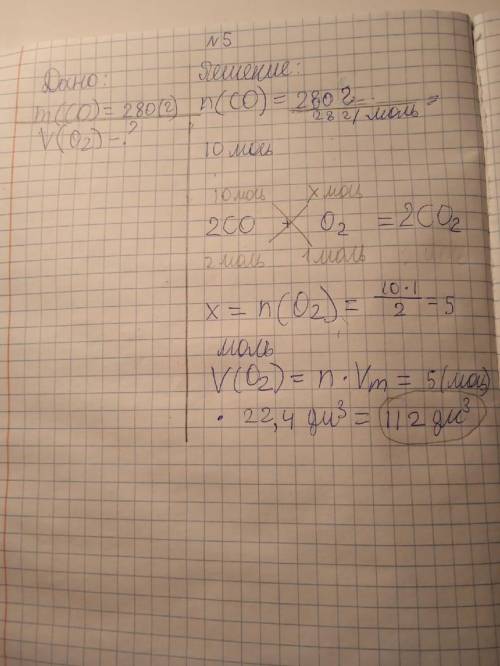 №5
Дано:
Решение:
m(CO) = 280(г)
n(CO) = 280 г / 28 г/моль =
V(O₂) - ?
10 моль
10 моль x моль
2CO + O₂ = 2CO₂
2 моль 1 моль
x = n(O₂) = 10·1 / 2 = 5
моль
V(O₂) = n · Vm = 5(моль)
· 22,4 дм³ = 112 дм³